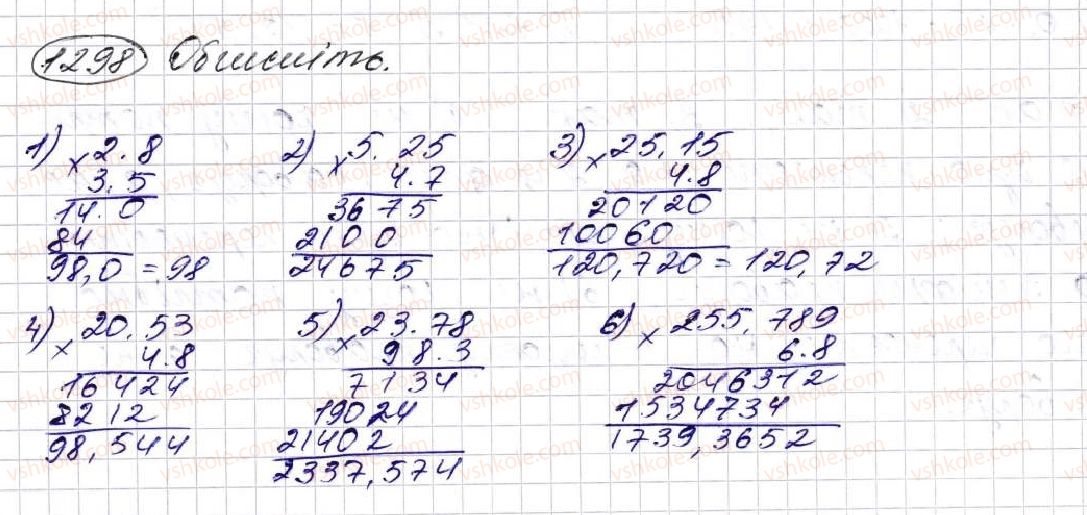 1298 Обчисліть.
1) × 2.8
3.5
14.0
84
98,0 = 98
2) × 5.25
4.7
3675
2100
24675
3) × 25,15
4.8
20120
10060
120,720 = 120,72
4) × 20.53
4.8
16424
8212
98,544
5) × 23.78
98.3
7134
19024
21402
2337,574
6) × 255,789
6.8
2046312
1534734
1739,3652